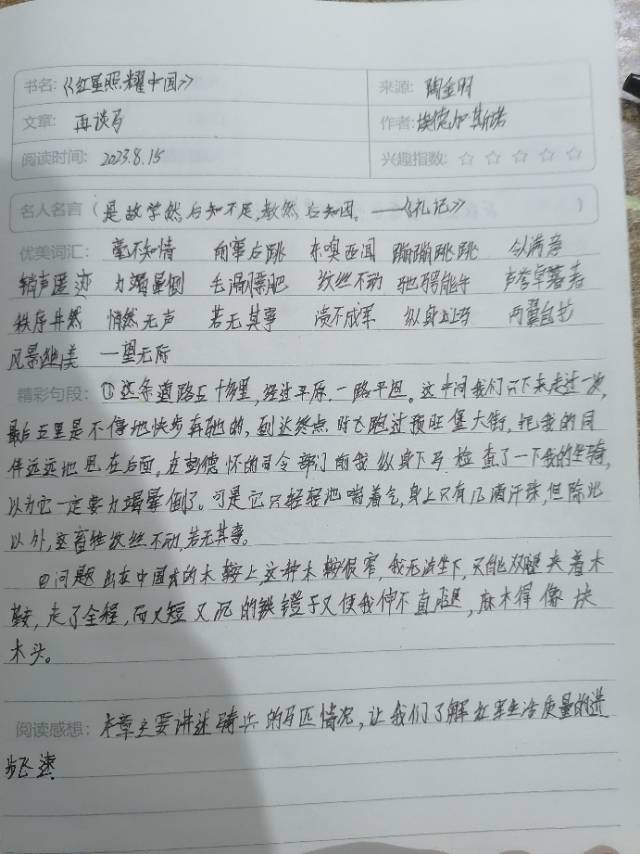 书名:《红星照耀中国》 来源: 陶金明
文章: 再谈马 作者:埃德加·斯诺
阅读时间: 2023.8.15 兴趣指数: ☆ ☆ ☆ ☆ ☆
名人名言(是故学然后知不足,教然后知困。——《礼记》 )
优美词汇: 毫不知情 向军后跳 东嗅西闻 蹦蹦跳跳
销声匿迹 力竭晕倒 毛润膘肥 纹丝不动 驰骋能手 声誉卓著
秩序井然 悄然无声 若无其事 溃不成军 纵身上马
风景幽美 一望无际
精彩句段: ①这条道路五十多里,经过平原,一路平坦。这中间我们只下来走过一次,
最后五里是不停地快步奔驰的,到达终点时飞跑过预旺堡大街,把我的同
伴远远地甩在后面,在彭德怀的司令部门前我纵身下马检查了一下我的坐骑,
以为它一定要力竭晕倒了。可是它只轻轻地喘着气,身上只有几滴汗珠,但除此
以外,这畜牲纹丝不动,若无其事。
②问题出在中国式的木鞍上,这种木鞍很窄,我无法坐下,只能双腿夹着木
鞍,走了全程,而又短又沉的铁镫子又使我伸不直腿,麻木得像块
木头。
阅读感想: 本章主要讲述骑兵的马匹情况,让我们了解红军生活质量的进
步飞速